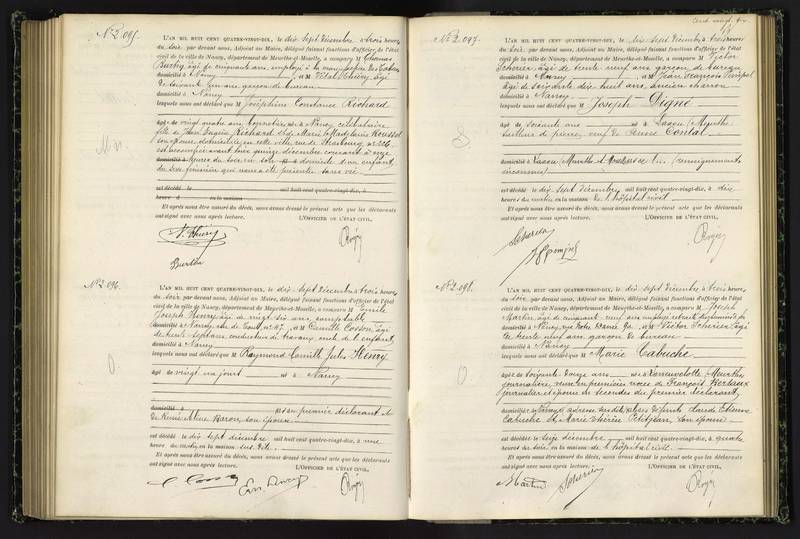 Nº 2.095.
L'AN MIL HUIT CENT QUATRE-VINGT-DIX, le dix Sept Décembre à trois heures
du soir par devant nous, Adjoint au Maire, délégué faisant fonctions d'officier de l'état
civil de la ville de Nancy, département de Meurthe-et-Moselle, a comparu M Thomas
âgé de cinquante ans, employé à la manufacture des Tabacs
domicilié à Nancy, et M Vital Thiéry âgé
de soixante un ans garçon de bureau
domicilié à Nancy
lesquels nous ont déclaré que M Joséphine Constance Richard
âgée de vingt quatre ans née à Nancy célibataire
fille de Richard et de Marie Madelaine Roussel
son épouse domiciliée en cette ville rue de Strasbourg nº 226
est accouchée avant hier quinze décembre courant à onze
heures du soir en son domicile d'un enfant
du sexe féminin qui nous a été présenté sans vie
est décédé le mil huit cent quatre-vingt-dix, à
heure d en la maison
Et après nous être assuré du décès, nous avons dressé le présent acte que les déclarants
ont signé avec nous après lecture. L'OFFICIER DE L'ÉTAT CIVIL,
Nº 2.096.
L'AN MIL HUIT CENT QUATRE-VINGT-DIX, le dix Sept Décembre à trois heures
du soir par devant nous, Adjoint au Maire, délégué faisant fonctions d'officier de l'état
civil de la ville de Nancy, département de Meurthe-et-Moselle, a comparu M Emile
Joseph Henry âgé de vingt six ans, comptable
domicilié à Nancy, et M Camille Cosson âgé
de trente sept ans, conducteur de travaux oncle de l'enfant
domicilié à Nancy
lesquels nous ont déclaré que M Raymond Camille Jules Henry
âgé de vingt un jours né à Nancy
domicilié à fils du premier déclarant et
de Baron, son épouse
est décédé le dix sept décembre mil huit cent quatre-vingt-dix, à une
heure du matin en la maison sus dite
Et après nous être assuré du décès, nous avons dressé le présent acte que les déclarants
ont signé avec nous après lecture. L'OFFICIER DE L'ÉTAT CIVIL,
Nº 2.097.
L'AN MIL HUIT CENT QUATRE-VINGT-DIX, le dix Sept Décembre à trois heures
du soir par devant nous, Adjoint au Maire, délégué faisant fonctions d'officier de l'état
civil de la ville de Nancy, département de Meurthe-et-Moselle, a comparu M Victor
Scherier âgé de trente neuf ans garçon de bureau
domicilié à Nancy, et M Jean François
âgé de soixante dix huit ans, ancien charron
domicilié à Nancy
lesquels nous ont déclaré que M Joseph Digne
âgé de soixante ans né à Laxou (Meurthe
tailleur de pierre, veuf de Contal
domicilié à Laxou (Meurthe et Moselle) (renseignements
inconnus)
est décédé le dix Sept décembre mil huit cent quatre-vingt-dix, à dix
heures du matin en la maison de l'hôpital civil
Et après nous être assuré du décès, nous avons dressé le présent acte que les déclarants
ont signé avec nous après lecture. L'OFFICIER DE L'ÉTAT CIVIL,
Nº 2.098.
L'AN MIL HUIT CENT QUATRE-VINGT-DIX, le dix Sept Décembre à trois heures
du soir par devant nous, Adjoint au Maire, délégué faisant fonctions d'officier de l'état
civil de la ville de Nancy, département de Meurthe-et-Moselle, a comparu M Joseph
Martin, âgé de cinquante neuf ans employé retraité
domicilié à Nancy, et M Victor Scherier âgé
de trente neuf ans garçon de bureau
domicilié à Nancy
lesquels nous ont déclaré que M Marie Cabuche
âgée de soixante douze ans née à Laneuvelotte (Meurthe
journalière, veuve en premières noces de François Bertaux
journalier et épouse en secondes du premier déclarant
domiciliée à fille des défunts Claude Etienne
Cabuche et Marie Thérèse Petitjean, son épouse
est décédée le seize décembre mil huit cent quatre-vingt-dix, à quatre
heures du soir en la maison de l'hôpital civil
Et après nous être assuré du décès, nous avons dressé le présent acte que les déclarants
ont signé avec nous après lecture. L'OFFICIER DE L'ÉTAT CIVIL,
Martin Scherier